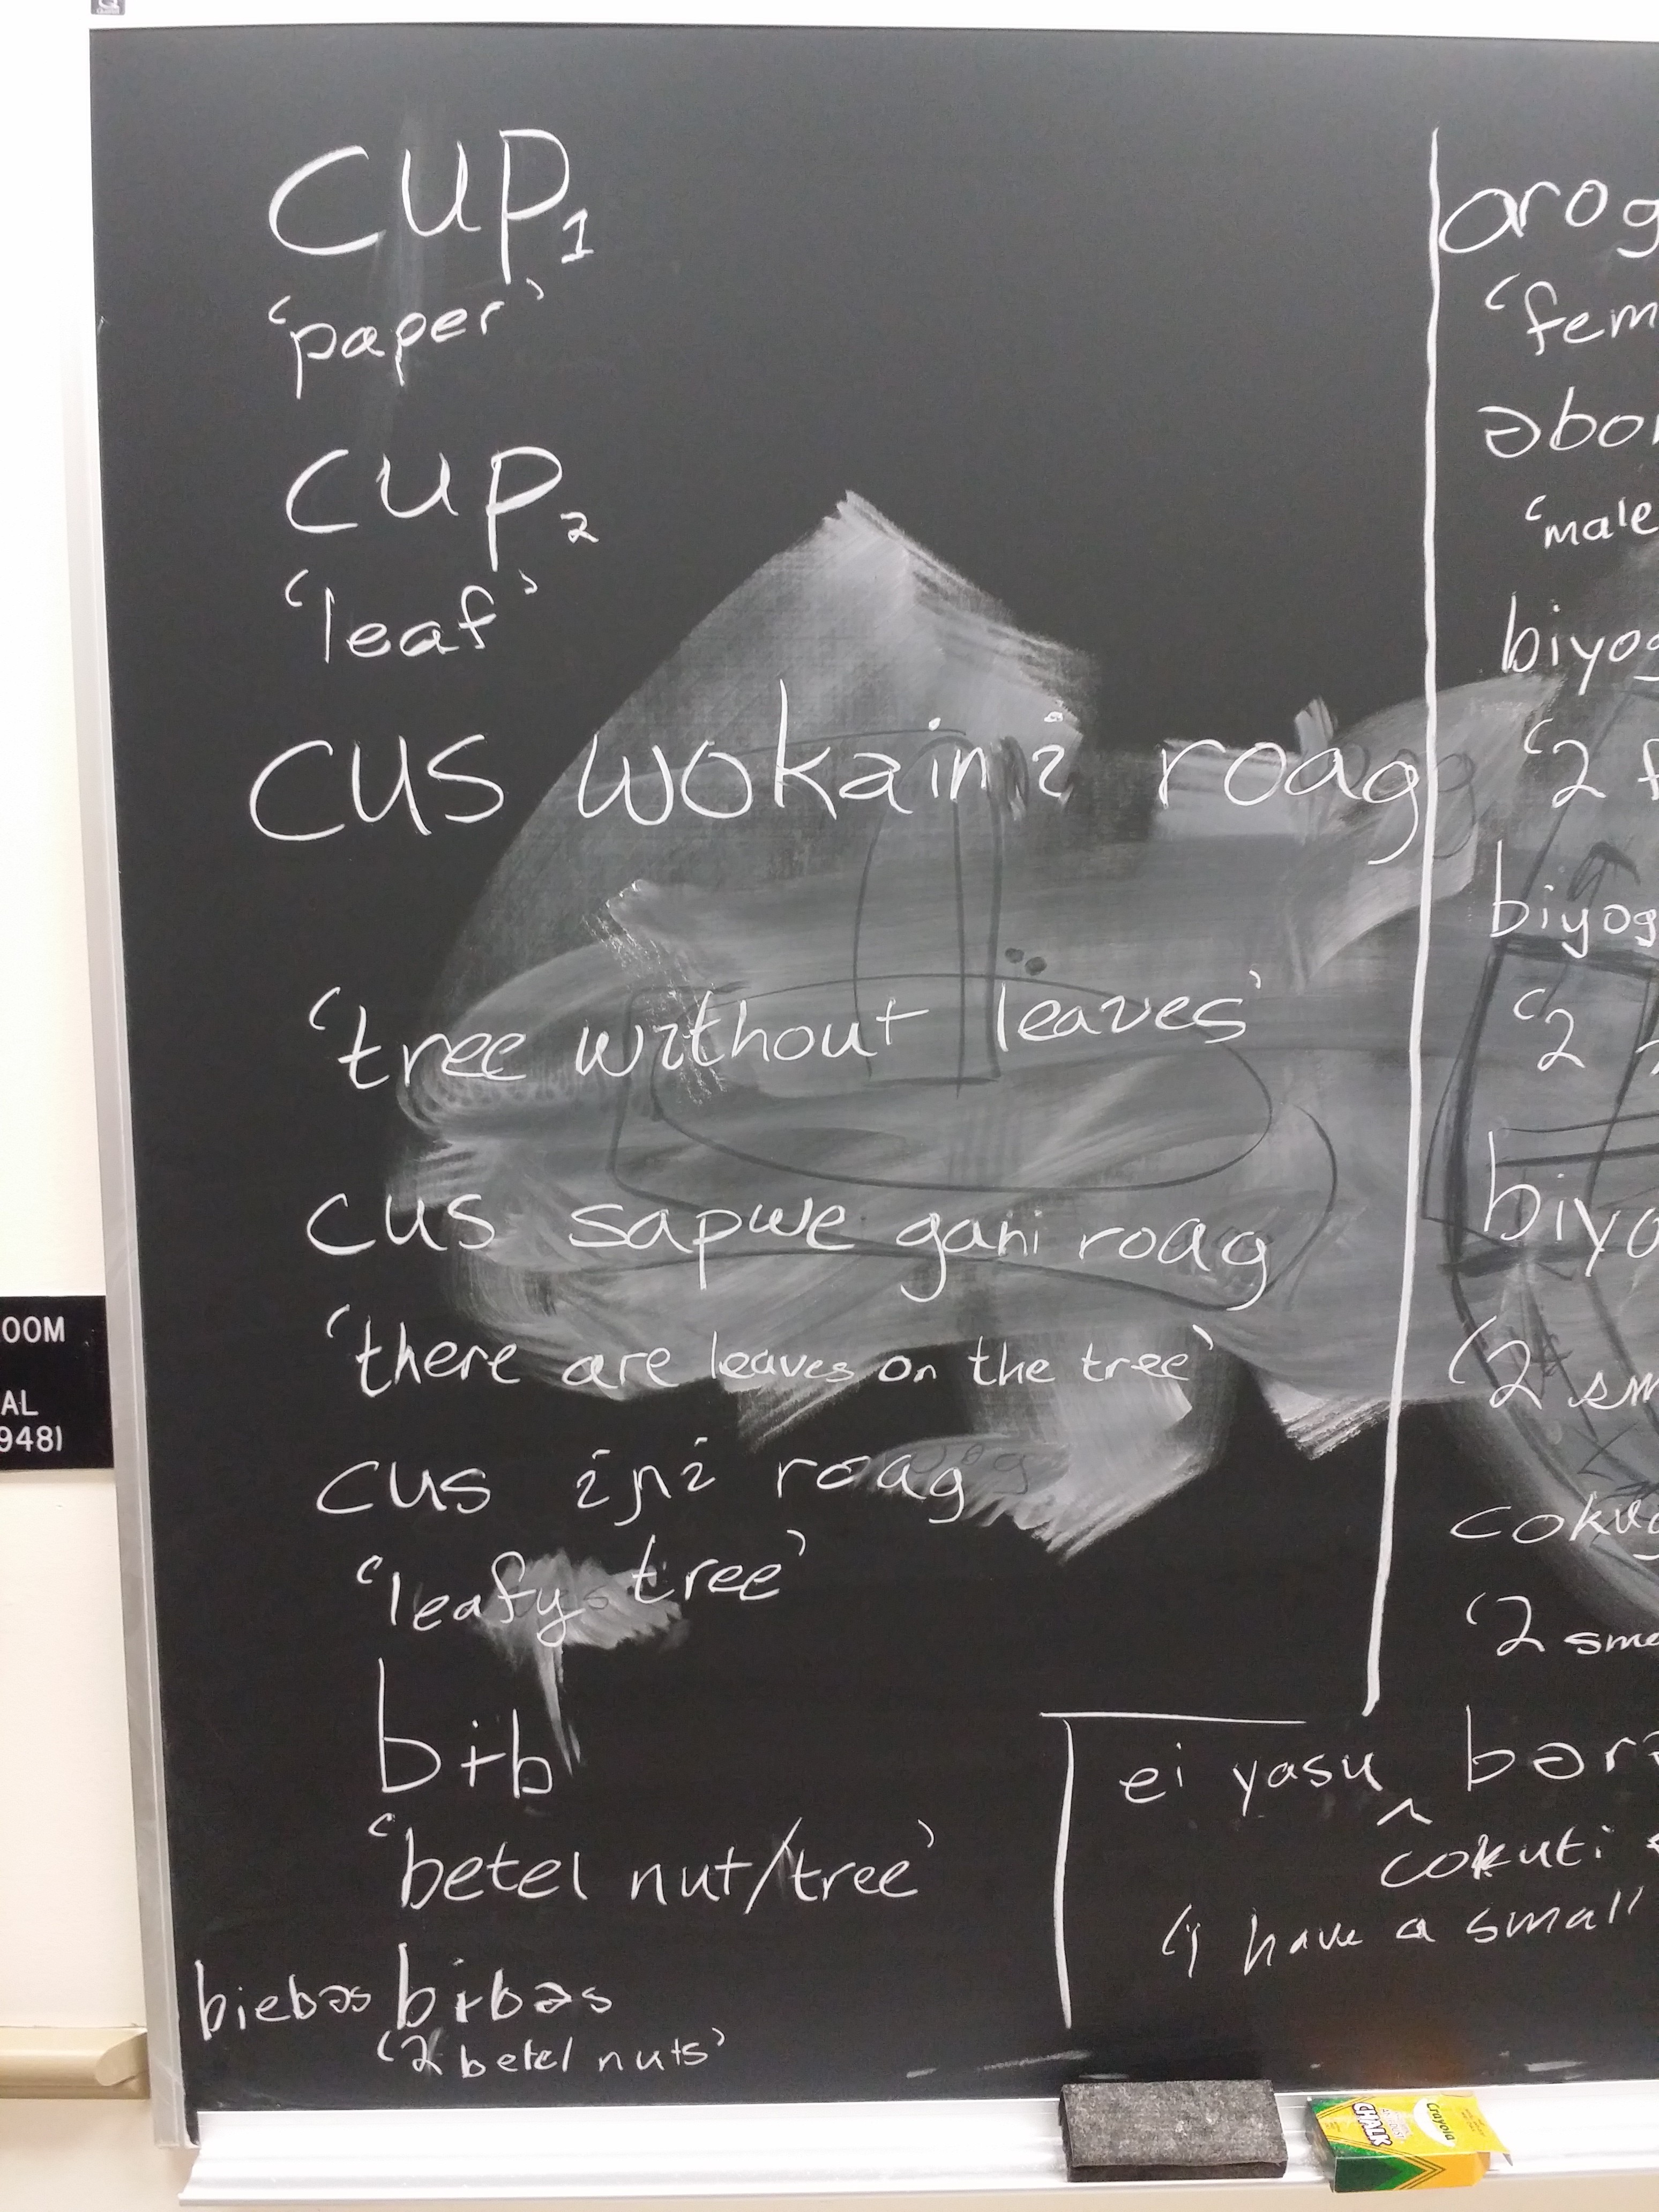 cup₁
'paper'
cup₂
'leaf'
cus wokaini roag
'tree without leaves'
cus sapwe gani roag
'there are leaves on the tree'
cus iɲi roag
'leafy tree'
bɨb
'betel nut/tree'
biebəs bɨbəs
'2 betel nuts'
arog
'fem
əbor
'male
biyog
'2 f
biyog
'2
biyo
'2 sm
coku
'2 sma
ei yasu bər
^
cokuti
'I have a small
OOM
AL
948)
Crayola
CHALK